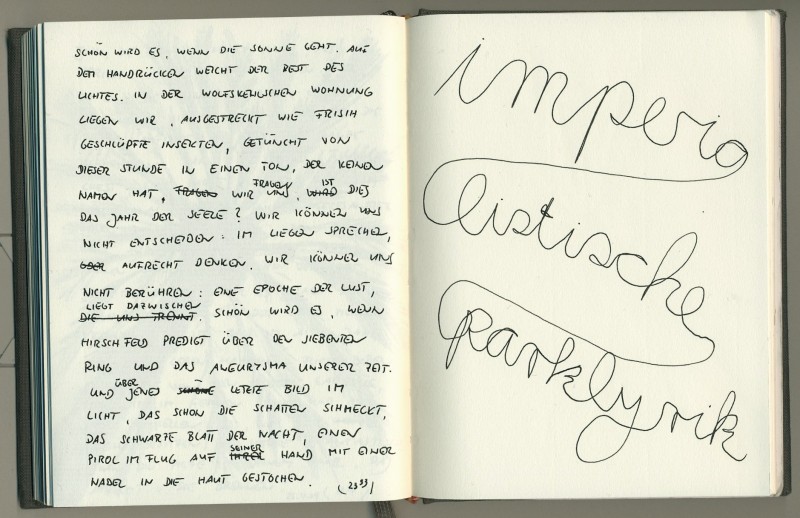 SCHÖN WIRD ES, WENN DIE SONNE GEHT. AUF
DEM HANDRÜCKEN WEICHT DER REST DES
LICHTES. IN DER WOLFSKEHLSCHEN WOHNUNG
LIEGEN WIR, AUSGESTRECKT WIE FRISCH
GESCHLÜPFTE INSEKTEN, GETÜNCHT VON
DIESER STUNDE IN EINEN TON, DER KEINEN
FRAGEN IST
NAMEN HAT, FRAGEN WIR UNS, WIRD DIES
DAS JAHR DER SEELE? WIR KÖNNEN UNS
NICHT ENTSCHEIDEN: IM LIEGEN SPRECHEN,
ODER AUFRECHT DENKEN. WIR KÖNNEN UNS
NICHT BERÜHREN: EINE EPOCHE DER LUST,
LIEGT DAZWISCHEN
DIE UNS TRENNT. SCHÖN WIRD ES, WENN
HIRSCHFELD PREDIGT ÜBER DEN SIEBENTEN
RING UND DAS ANEURYSMA UNSERER ZEIT.
ÜBER
UND JENES SCHÖNE LETZTE BILD IM
LICHT, DAS SCHON DIE SCHATTEN SCHMECKT,
DAS SCHWARZE BLATT DER NACHT, EINEN
SEINER
PIROL IM FLUG AUF IHRER HAND MIT EINER
NADEL IN DIE HAUT GESTOCHEN.
imperia
listische
parklyrik